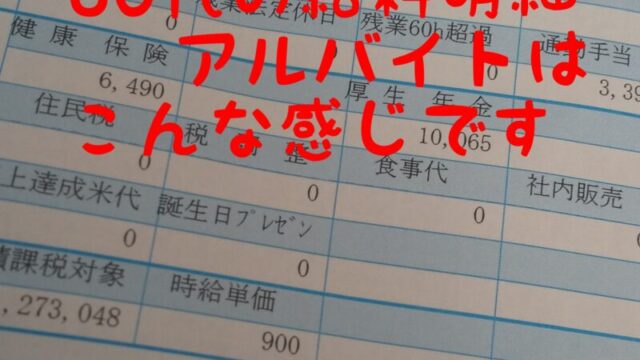 残業法定休日 残業60h超過 通勤手当
0 0 3,39
健康保険 厚生年金
6,490 0 10,065
アルバイトは
こんな感じです
住民税 税 整 食事代 社内販売
0 0 0 0
上達成米代 誕生日ﾌﾟﾚｾﾞﾝ
0 0
積課税対象 時給単価
,273,048 900